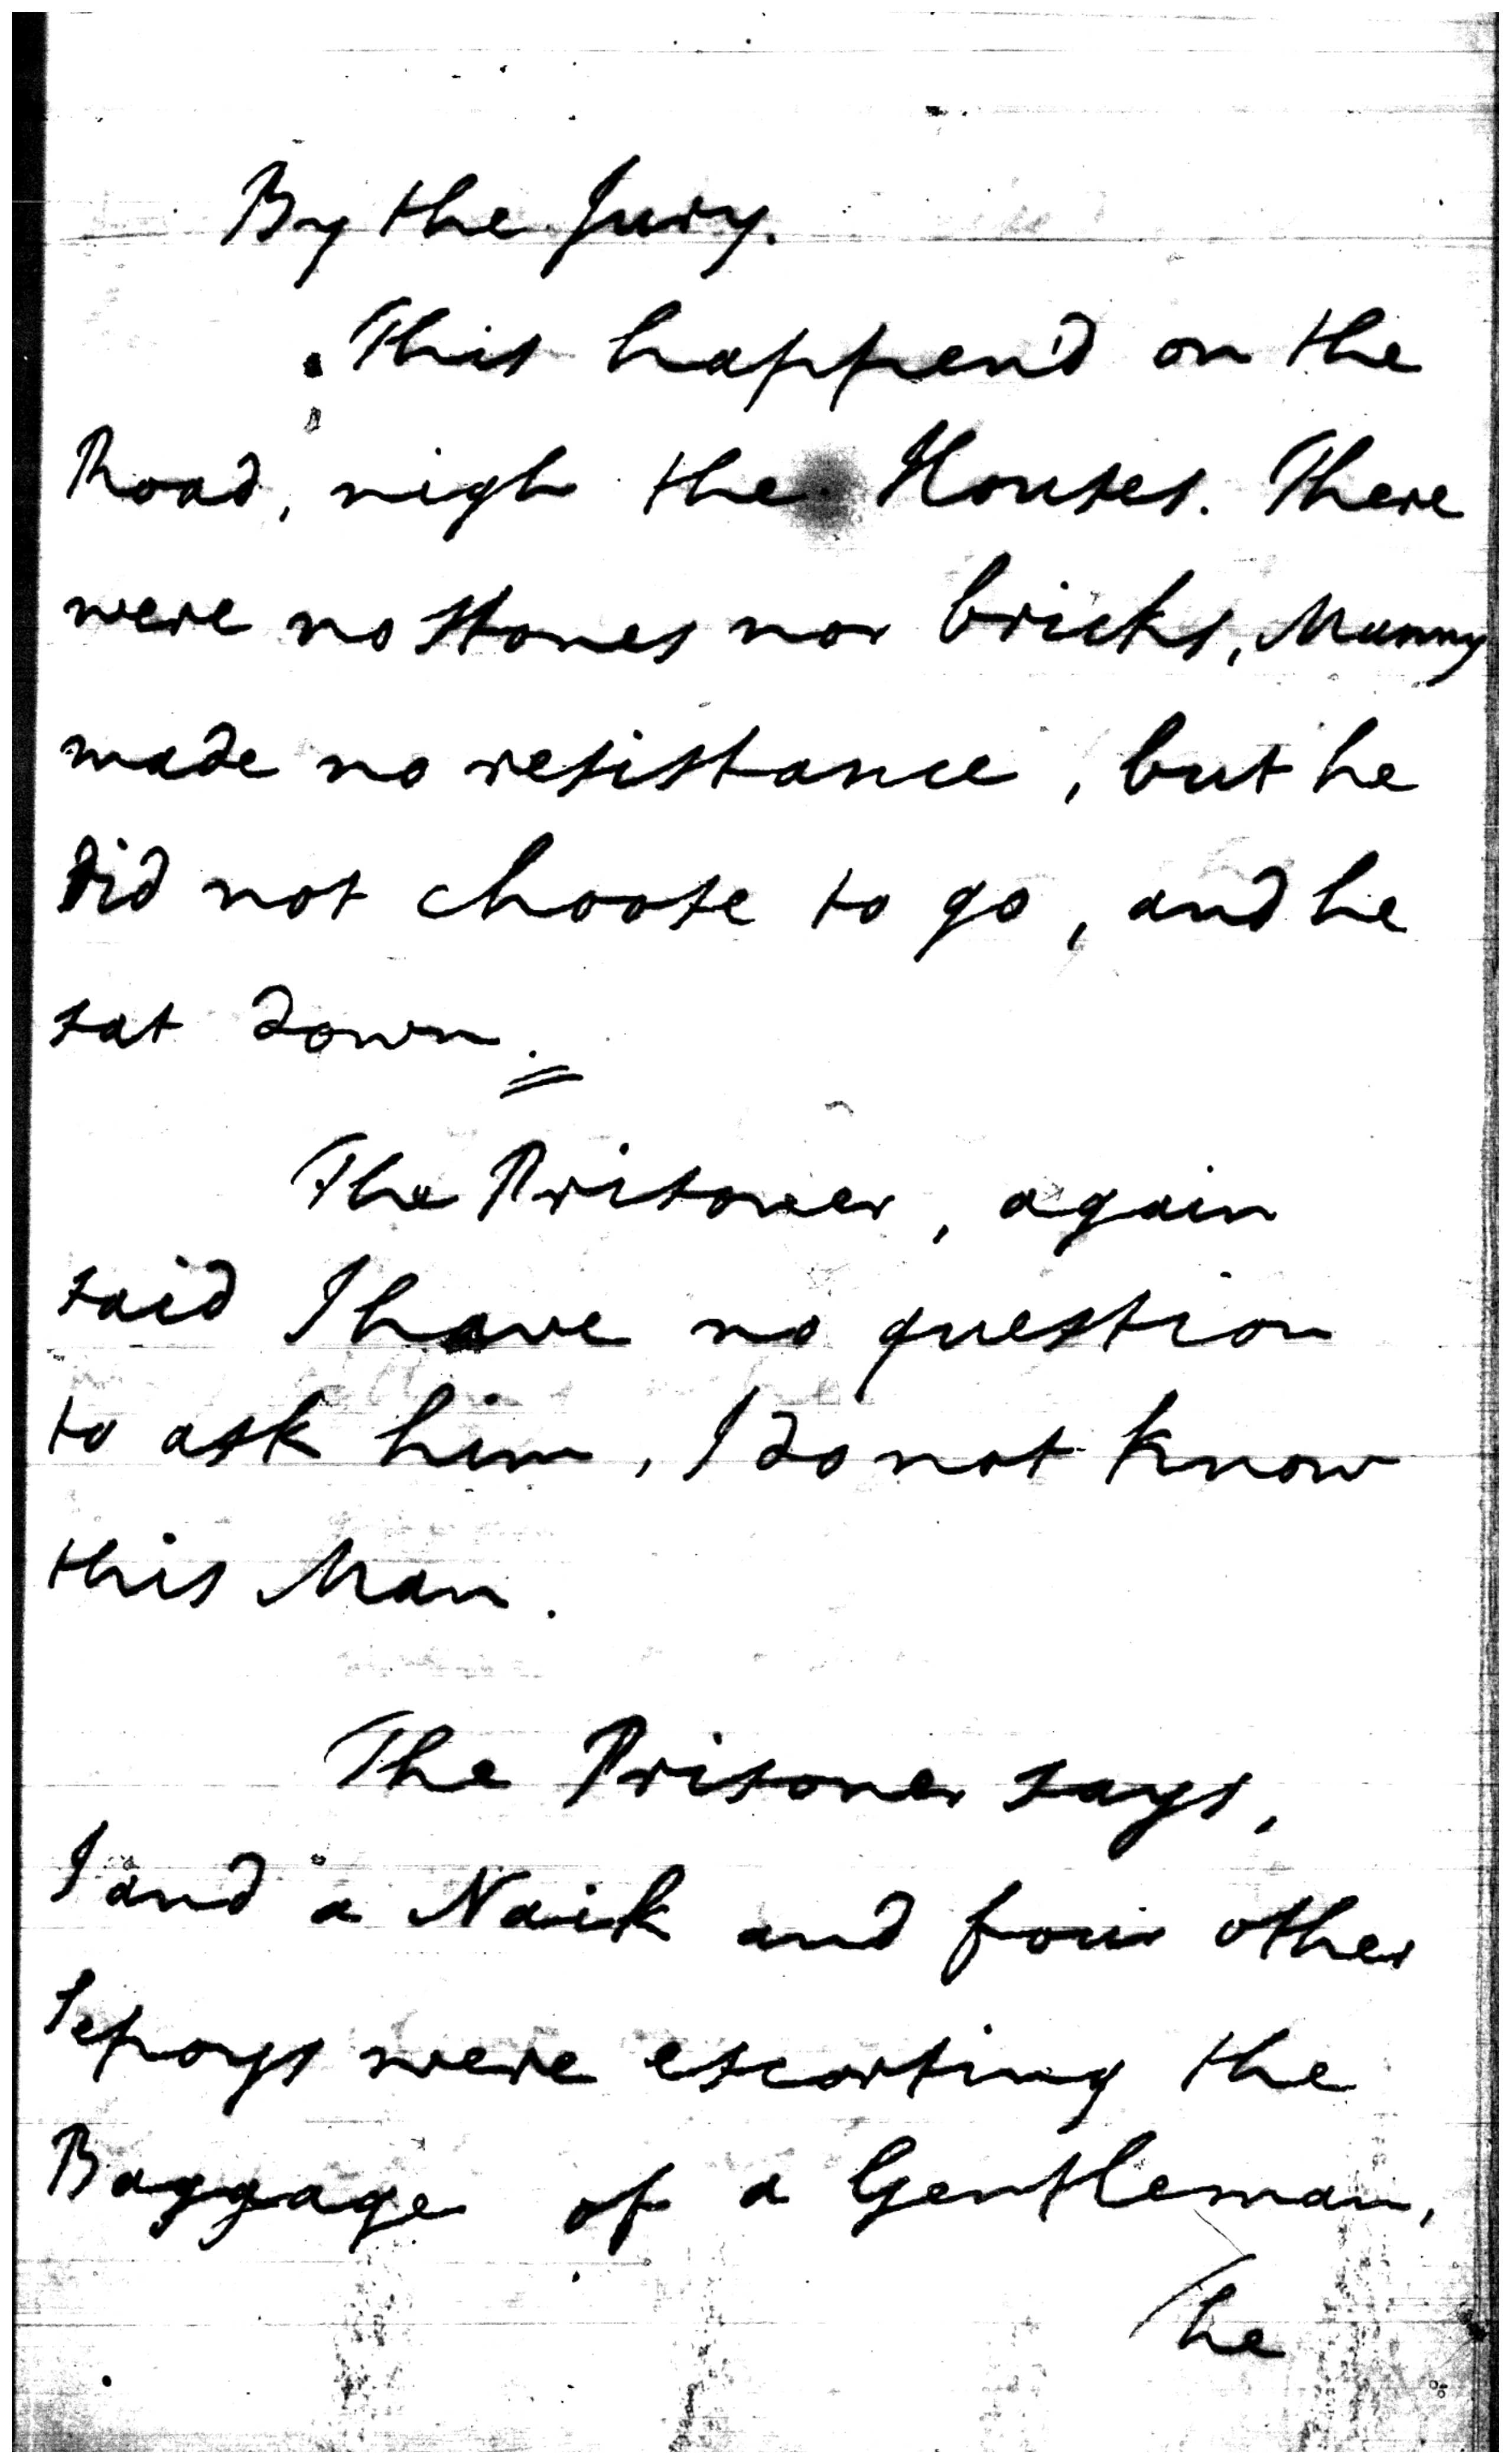 By the Jury.
This happen'd on the
Road, nigh the Houses. There
were no stones nor bricks, Munny
made no resistance, but he
did not choose to go, and he
sat down.
The Prisoner, again
said I have no question
to ask him, I do not know
this Man.
The Prisoner says,
I and a Naik and four other
Sepoys were escorting the
Baggage of a Gentleman,
The